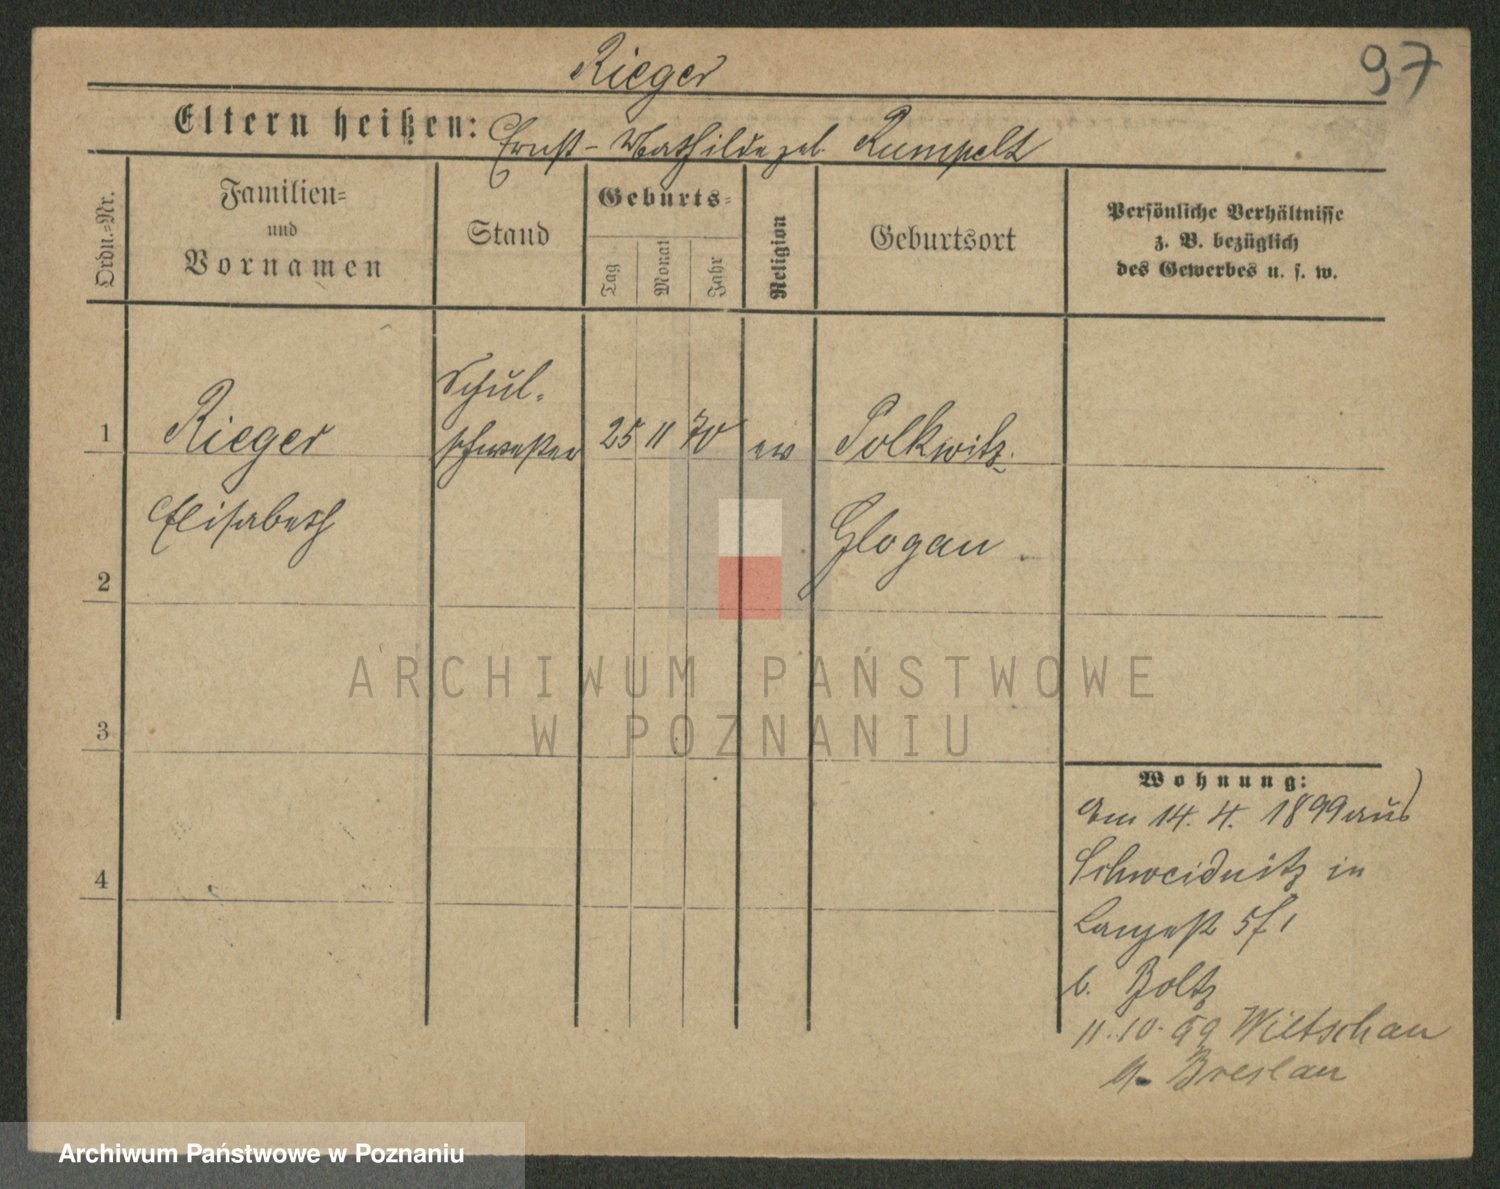 Rieger
97
Eltern heißen: Ernst - Mathilde geb. Rumpelt
Ordn.=Nr.
Familien=
und
Vornamen
Stand
Geburts=
Tag
Monat
Jahr
Religion
Geburtsort
Persönliche Verhältnisse
z. B. bezüglich
des Gewerbes u. s. w.
Schul-
1 Rieger schwester 25 11 70 ev Polkwitz.
Elisabeth Glogau
2
3
4
ARCHIWUM PAŃSTWOWE
W POZNANIU
Wohnung:
Am 14. 4. 1899 aus
Schweidnitz in
Langestr 5
b. Boltz
11.10.99 Wiltschau
Breslau
Archiwum Państwowe w Poznaniu